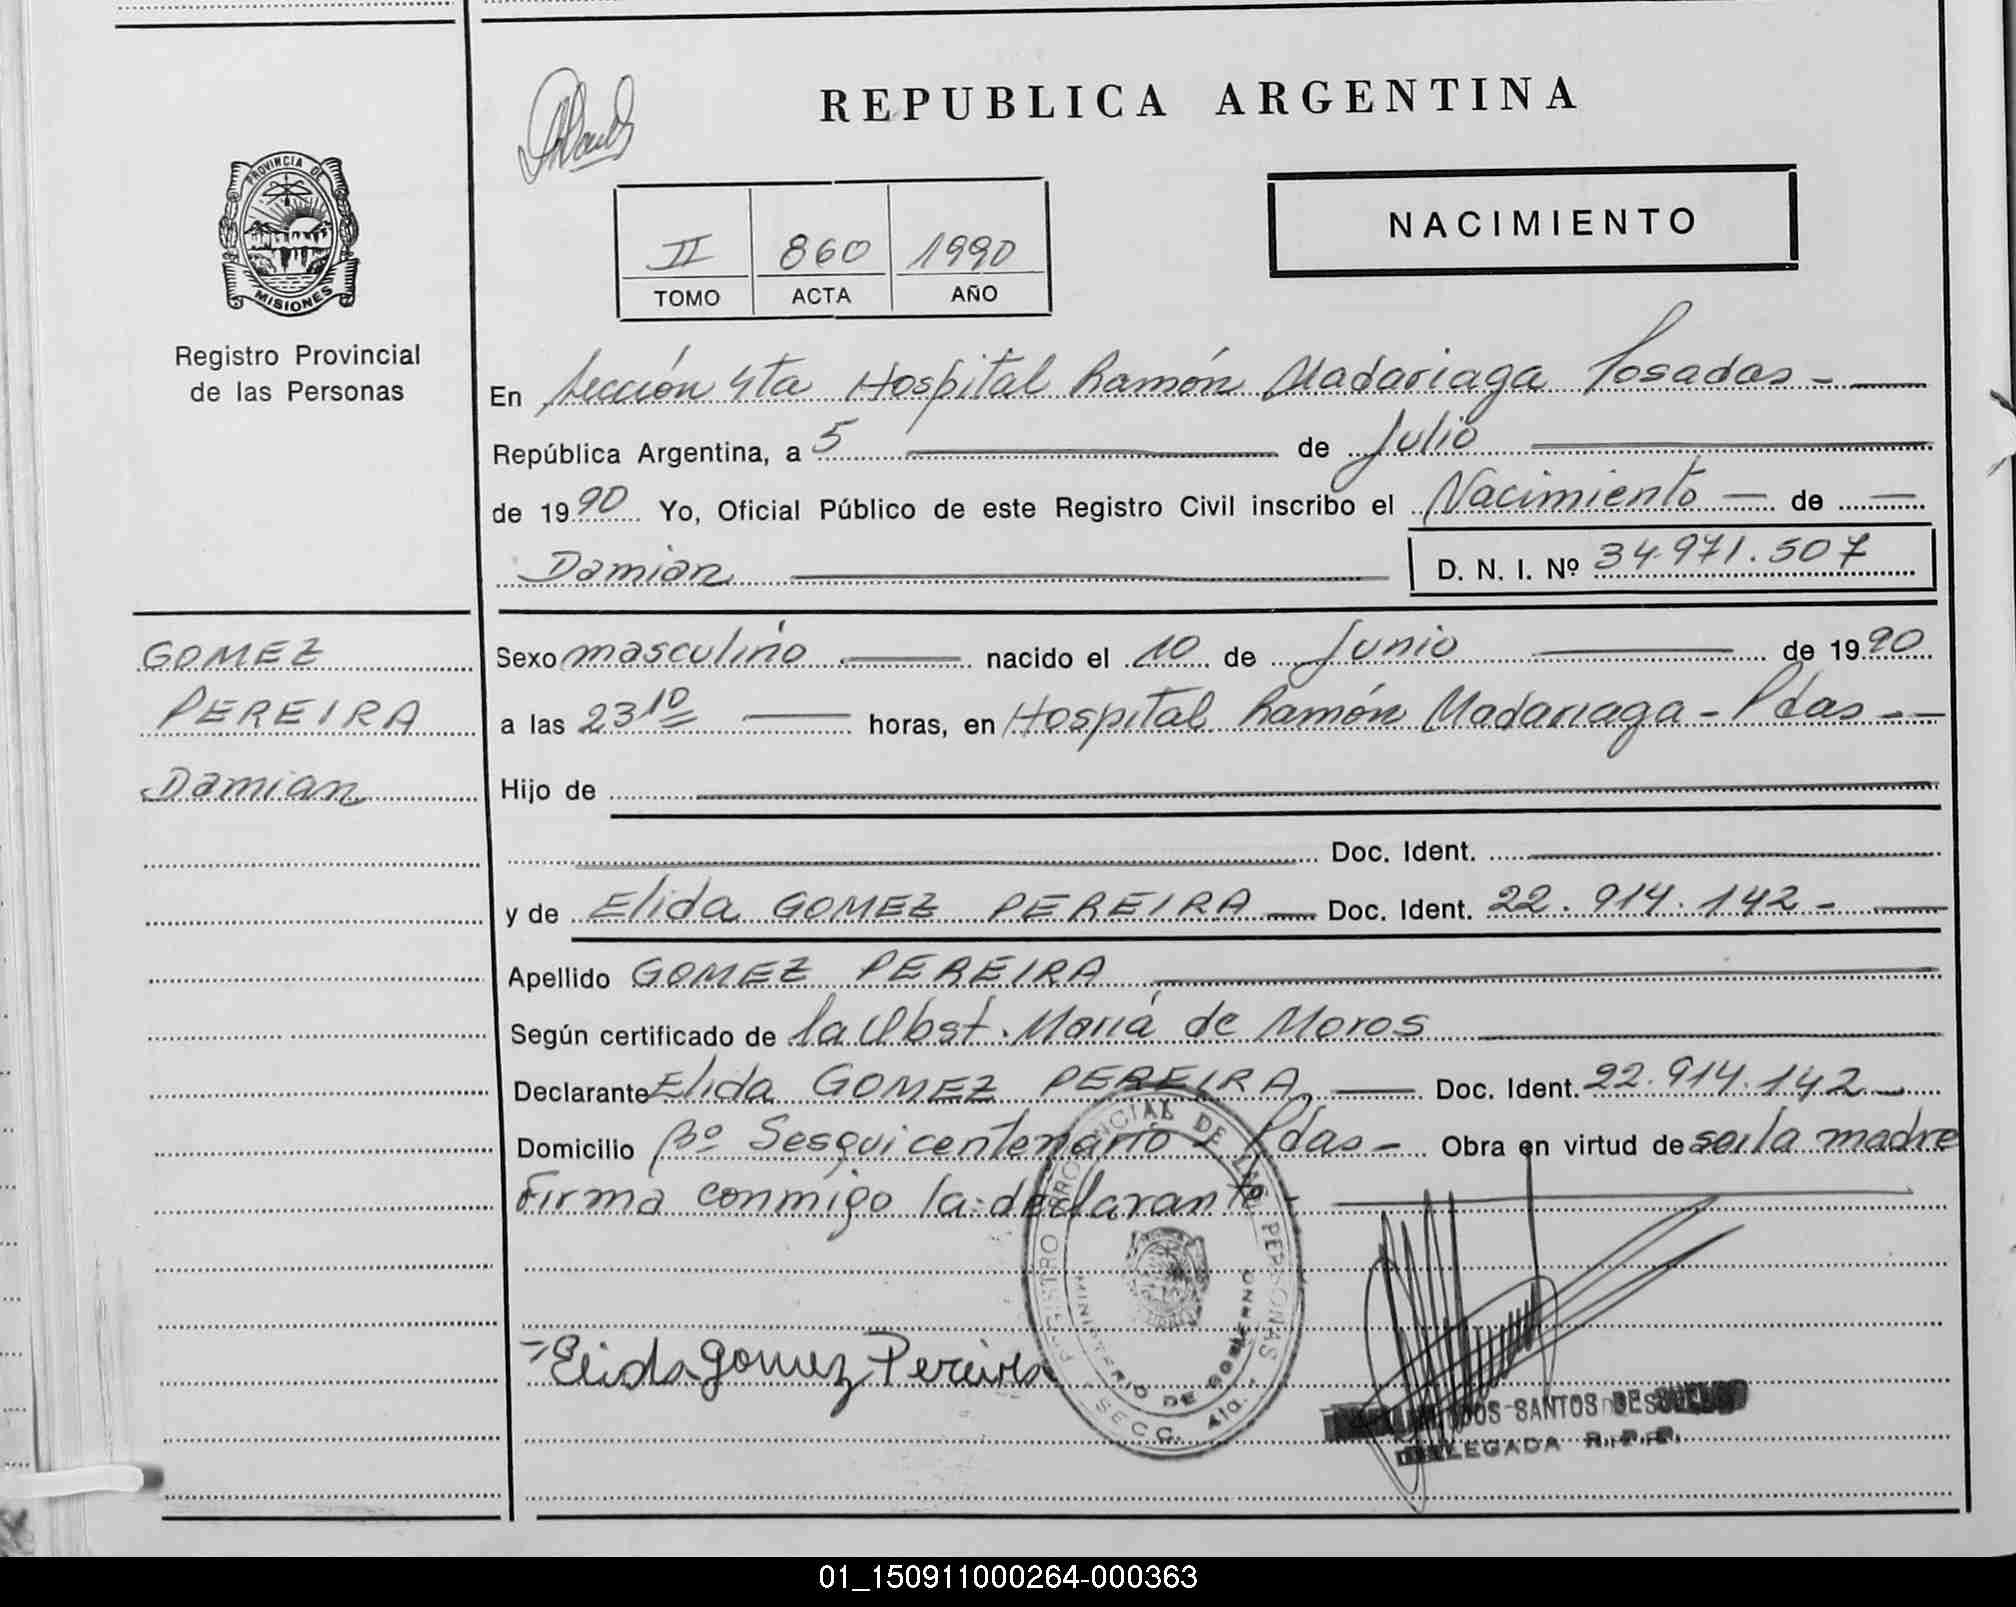 REPUBLICA ARGENTINA
PROVINCIA DE
MISIONES
Registro Provincial
de las Personas
NACIMIENTO
II 860 1990
TOMO ACTA AÑO
En Sección 4ta Hospital Ramón Madariaga Posadas -
República Argentina, a 5 de Julio
de 1990 Yo, Oficial Público de este Registro Civil inscribo el Nacimiento de
Damian D. N. I. Nº 34.971.507
GOMEZ
PEREIRA
Damian
Sexo masculino nacido el 10 de Junio de 1990
a las 23 10 horas, en Hospital Ramón Madariaga - Pdas -
Hijo de
Doc. Ident.
y de Elida GOMEZ PEREIRA Doc. Ident. 22.914.142 -
Apellido GOMEZ PEREIRA
Según certificado de la Obst. María de Moros
Declarante Elida GOMEZ PEREIRA Doc. Ident. 22.914.142
Domicilio Bº Sesquicentenario - Pdas - Obra en virtud de ser la madre
Firma conmigo la declarante -
REGISTRO PROVINCIAL DE LAS PERSONAS
MINISTERIO DE GOBIERNO
SECC. 4ta.
Elida gomez Pereira
DOS SANTOS DE
DELEGADA R.P.P.
01_150911000264-000363